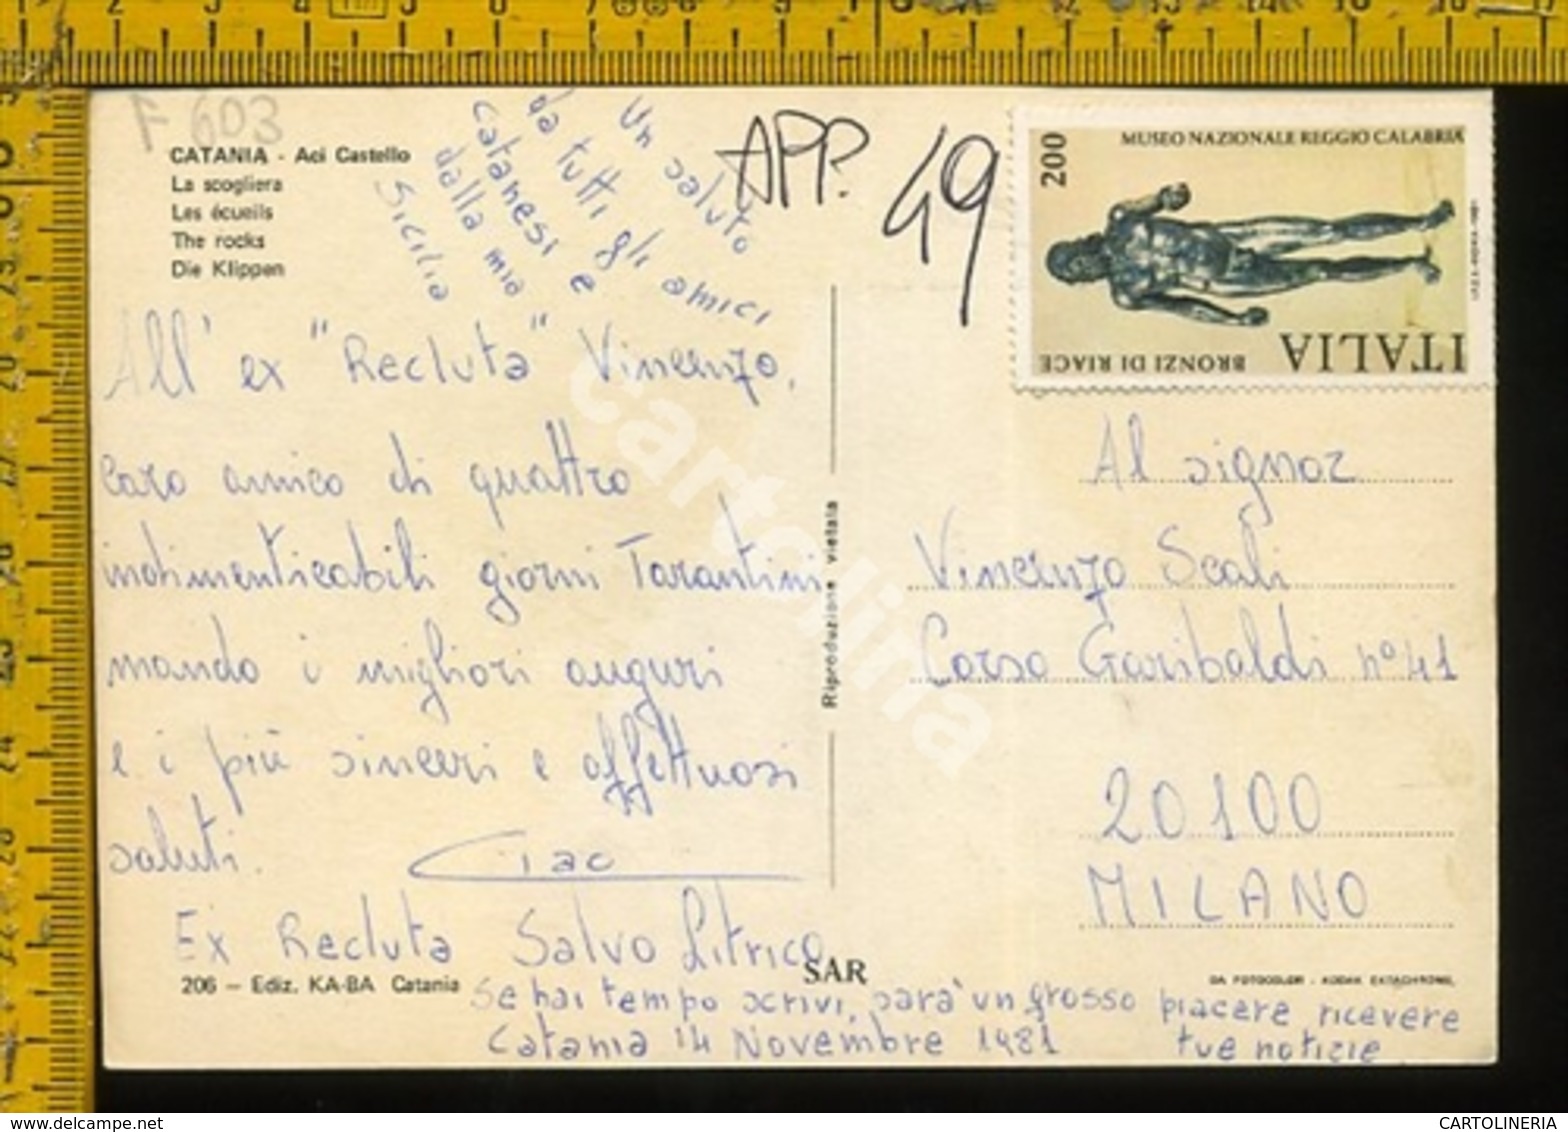 F 603
CATANIA - Aci Castello
La scogliera
Les écueils
The rocks
Die Klippen
Un saluto
da tutti gli amici
catanesi e
dalla mia
Sicilia
APP. 49
MUSEO NAZIONALE REGGIO CALABRIA
200
BRONZI DI RIACE
ITALIA
All' ex "Recluta" Vincenzo,
caro amico di quattro
indimenticabili giorni Tarantini
mando i migliori auguri
e i più sinceri e affettuosi
saluti. Ciao
Ex Recluta Salvo Litrico
Se hai tempo scrivi, sarà un grosso piacere ricevere
tue notizie
Catania 14 Novembre 1981
206 — Ediz. KA-BA Catania
SAR
Riproduzione vietata
Al signor
Vincenzo Scali
Corso Garibaldi n° 41
20100
MILANO
DA FOTOCOLOR - KODAK EKTACHROME,
cartolinra
CARTOLINERIA